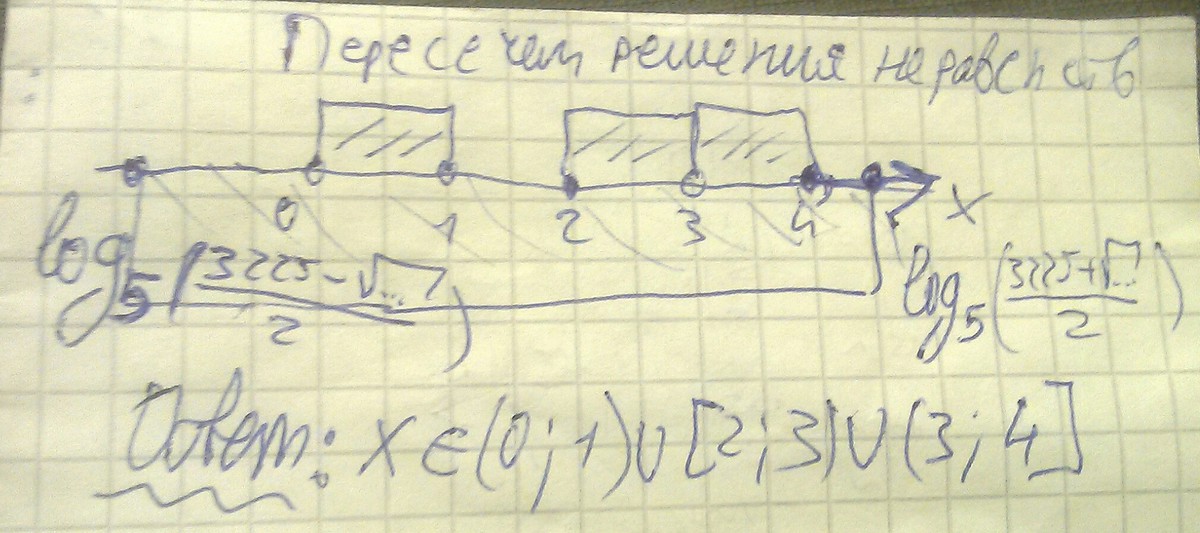 Пересечем решения неравенств
0 1 2 3 4 x
log₅(3225-√...)/2) log₅(3225+√...)/2)
Ответ: x∈(0;1)∪[2;3)∪(3;4]